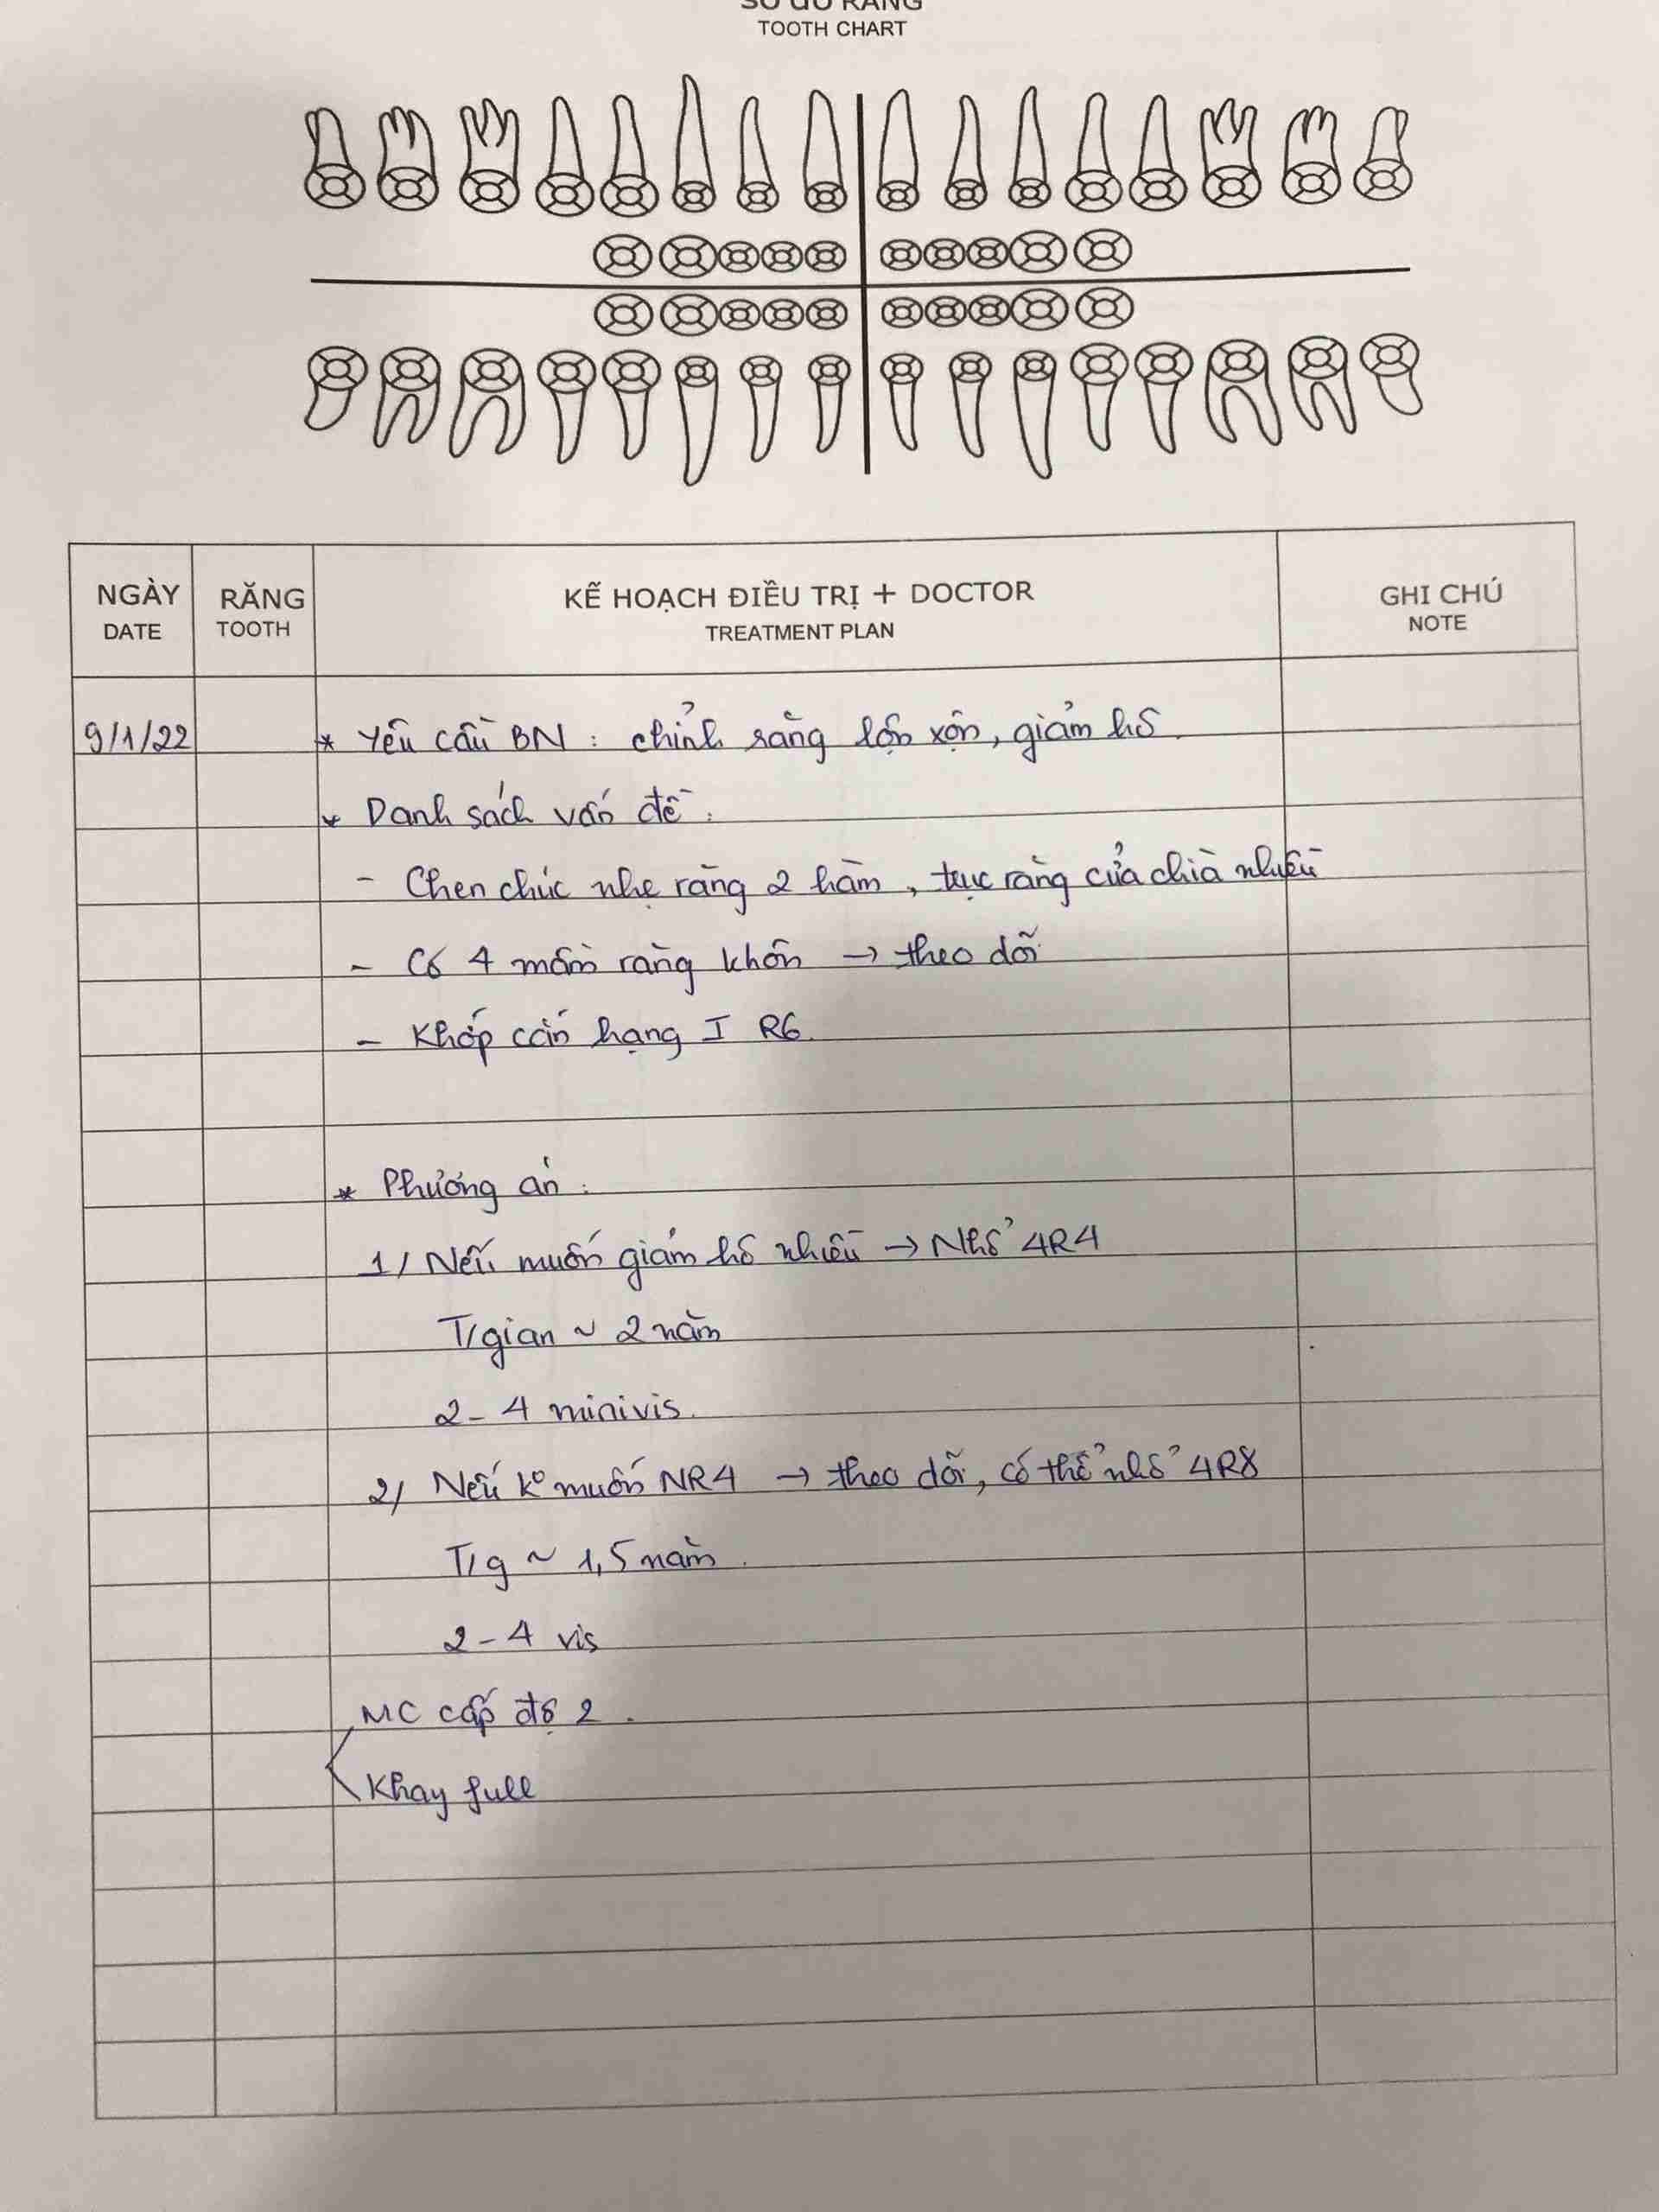 SƠ ĐỒ RĂNG
TOOTH CHART
NGÀY
DATE
RĂNG
TOOTH
KẾ HOẠCH ĐIỀU TRỊ + DOCTOR
TREATMENT PLAN
GHI CHÚ
NOTE
9/1/22
* Yêu cầu BN : chỉnh răng lộn xộn, giảm hô.
* Danh sách vấn đề :
- Chen chúc nhẹ răng 2 hàm, trục răng cửa chìa nhiều
- Có 4 mầm răng khôn → theo dõi
- Khớp cắn hạng I R6.
* Phương án :
1/ Nếu muốn giảm hô nhiều → Nhổ 4R4
T/gian ~ 2 năm
2-4 minivis.
2/ Nếu k° muốn NR4 → theo dõi, có thể nhổ 4R8
T/g ~ 1,5 năm.
2-4 vis
MC cấp độ 2.
Khay full